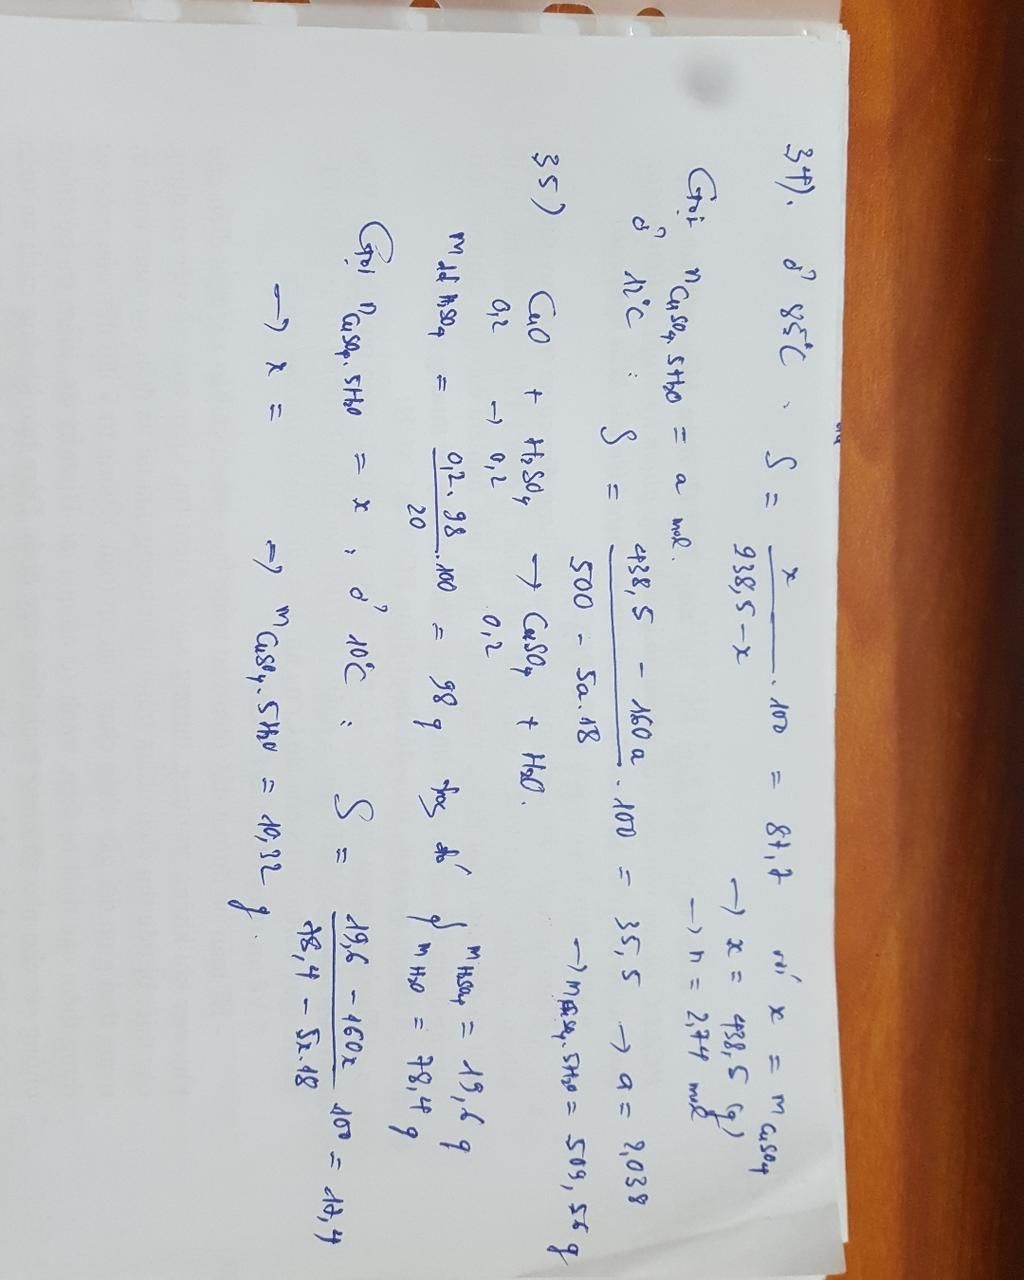 34). ở 85°C. S = x / 938,5 - x . 100 = 87,7 với x = mCuSO4
→ x = 438,5 (g)
→ n = 2,74 mol
Gọi nCuSO4.5H2O = a mol.
ở 12°C : S = 438,5 - 160a / 500 - 5a.18 . 100 = 35,5 → a = 2,038
→ mCuSO4.5H2O = 509,56 g
35) CuO + H2SO4 → CuSO4 + H2O.
0,2 → 0,2 0,2
mdd H2SO4 = 0,2.98 / 20 .100 = 98 g trong đó { mH2SO4 = 19,6 g
mH2O = 78,4 g
Gọi nCuSO4.5H2O = x, ở 10°C : S = 19,6 - 160x / 78,4 - 5x.18 100 = 17,4
→ x = → mCuSO4.5H2O = 10,32 g.